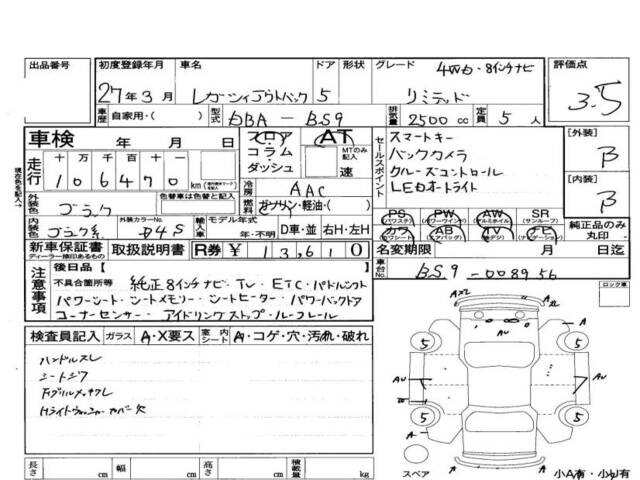 出品番号 初度登録年月 車名 ドア 形状 グレード 4WD・8インチナビ 評価点
27年3月 レガーシィアウトバック 5 リミテッド 3.5
車歴 自家用・( ) 型式 DBA-BS9 排気量 2500cc 定員 5人
車検 年 月 日 フロア コラム ダッシュ AT MTのみ記入 速
セールスポイント スマートキー
バックカメラ
クルーズコントロール
LEDオートライト
[外装] B
[内装] B
走行 十 万 千 百 十 一
106470 km
現在色を記入→
外装色 ブラック 色替車は色替と記入
冷房 AAC
燃料 ガソリン・軽油・( )
内装色 ブラック系 外装カラーNo. D4S 輸入車 モデル年式 年・不明 D車・並 右H・左H
PS (パワステ) PW (パワーウインド) AW (アルミホイル) SR (サンルーフ)
カワ (カワシート) AB (エアバッグ) TV (テレビ) ナビ (ナビゲーション)
純正品のみ丸印
新車保証書 ディーラー捺印あるもの 取扱説明書 R券 ¥13,610
名変期限 月 日迄
注意事項 後日品【 】
不具合箇所等 純正8インチナビ・TV ETC・パドルシフト
パワーシート・シートメモリー・シートヒーター パワーバックドア
コーナーセンサー・アイドリングストップ・ルーフレール
車台No. BS9-008956
ロック車
検査員記入 ガラス A・X要ス 室内シート A・コゲ・穴・汚れ・破れ
ハンドルスレ
シートシワ
Hライトウォッシャーカバー欠
A
5 5
AU AU
5 5
A
スペア
小A有・小U有
長さ cm 幅 cm 高さ cm 積載量 kg